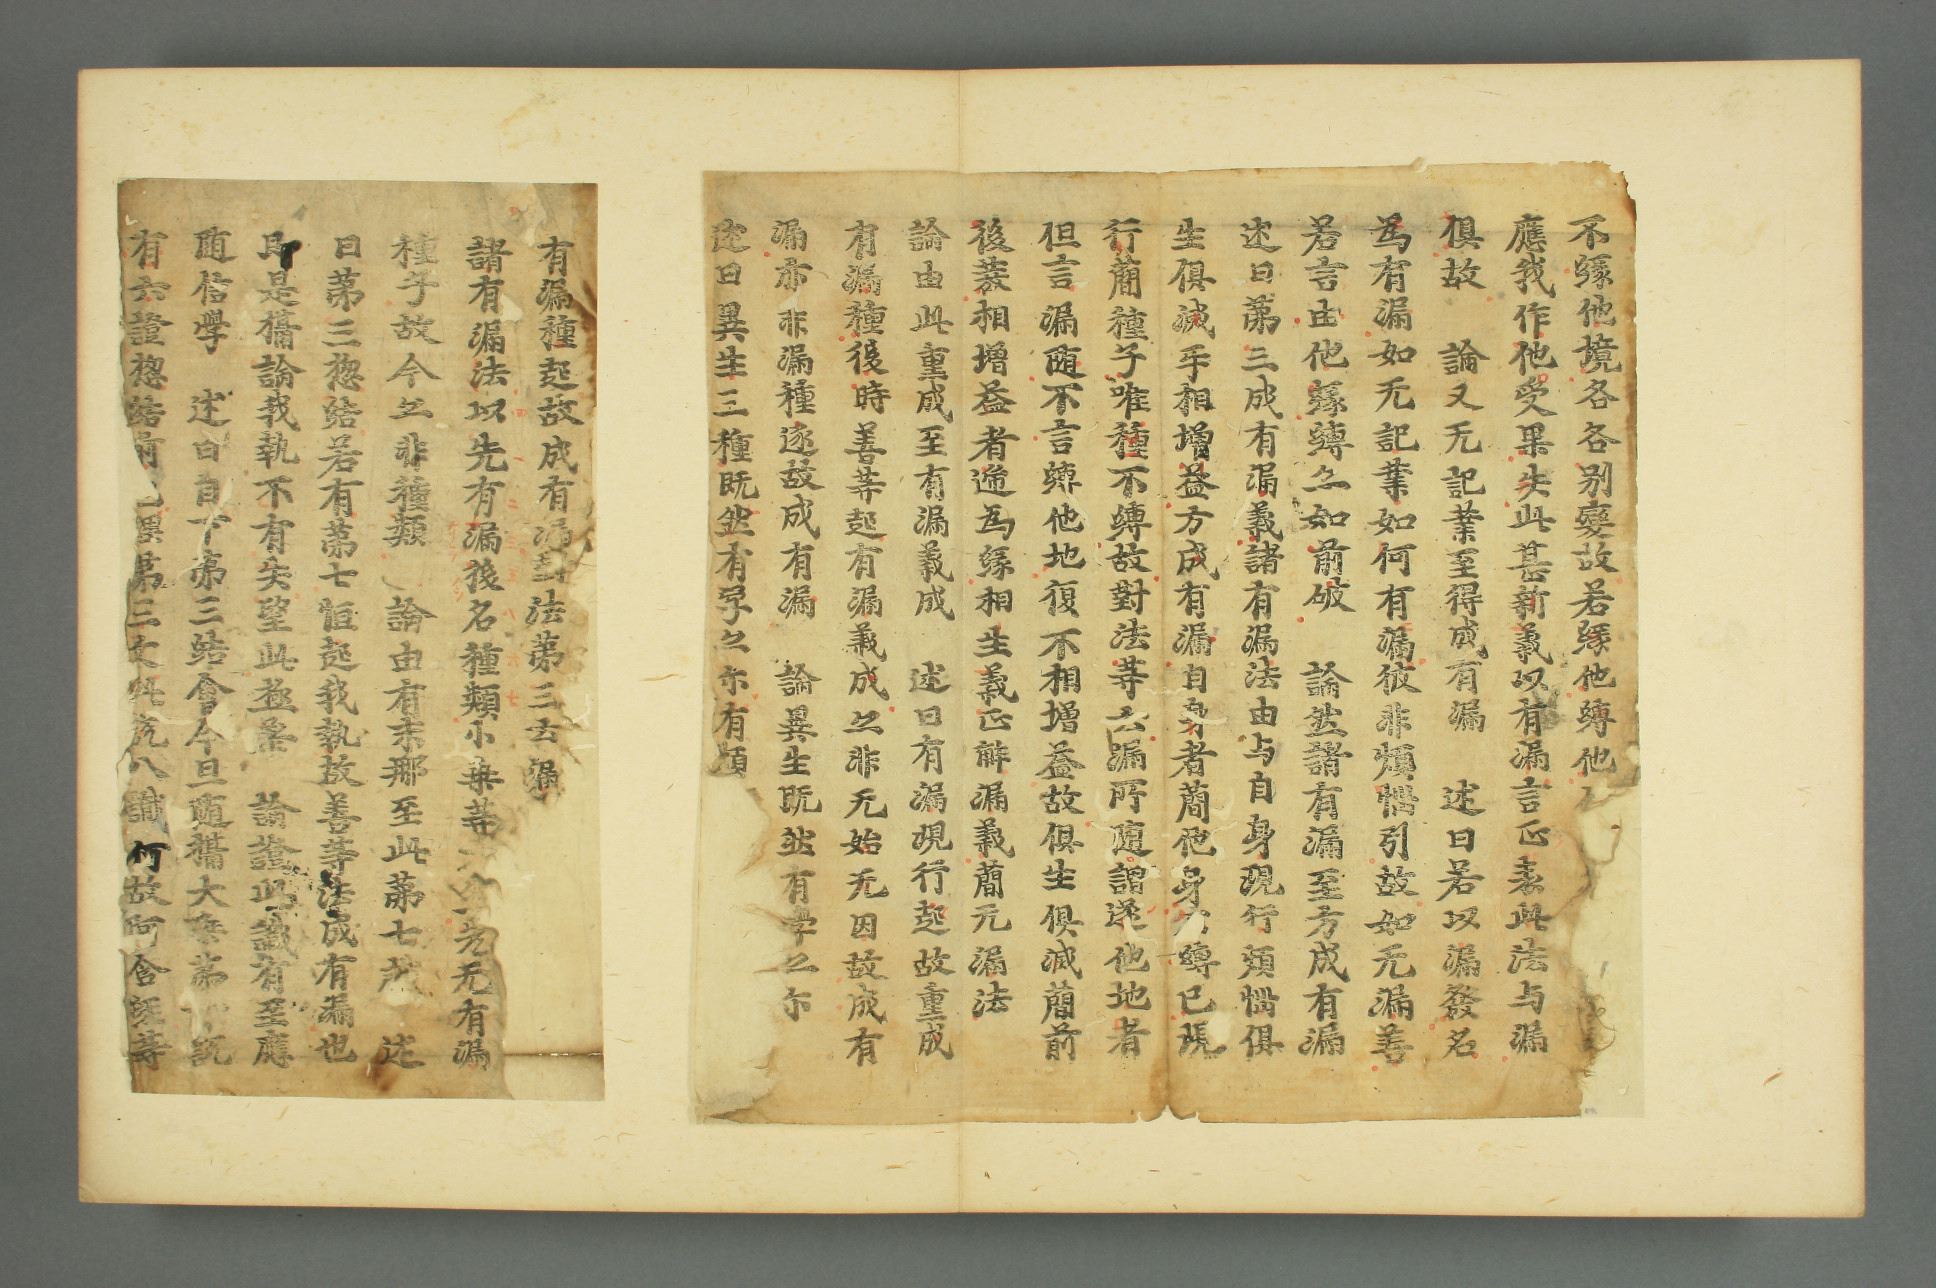 不緣他境各各別變故若緣他縛他
應我作他受果失此甚新義以有漏言正表此法与漏
俱故　論又无記業至得成有漏　述曰若以漏發名
為有漏如无記業如何有漏彼非煩惱引故如无漏善
若言由他緣縛亦如前破　論然諸有漏至方成有漏
述曰第三成有漏義諸有漏法由与自身現行煩惱俱
生俱滅手相增益方成有漏自身者蕳他身六縛已現
行蕳種子唯種不縛故對法等云漏所隨謂逐他地者
但言漏隨不言縛他地復不相增益故俱生俱滅蕳前
後蕟相增益者遞為緣相生義正解漏義蕳无漏法
論由此重成至有漏義成　述曰有漏現行起故重成
有漏種後時善等起有漏義成亦非无始无因故成有
漏亦非漏種逐故成有漏　論異生既然有學亦尔
述曰異生三種既然有学亦尔有煩
有漏種起故成有漏對法第三云漏
諸有漏法以先有漏後名種類小乘等先无有漏
種子故今亦非種類　論由有末那至此第七識　述
曰第三惣結若有第七恒起我執故善等法成有漏也
即是攝論我執不有失望此極業　論證此識有至應
随信學　述曰自下第三結會今且随攝大乘第說
有六證惣結前第三文此說八識何故阿含既等